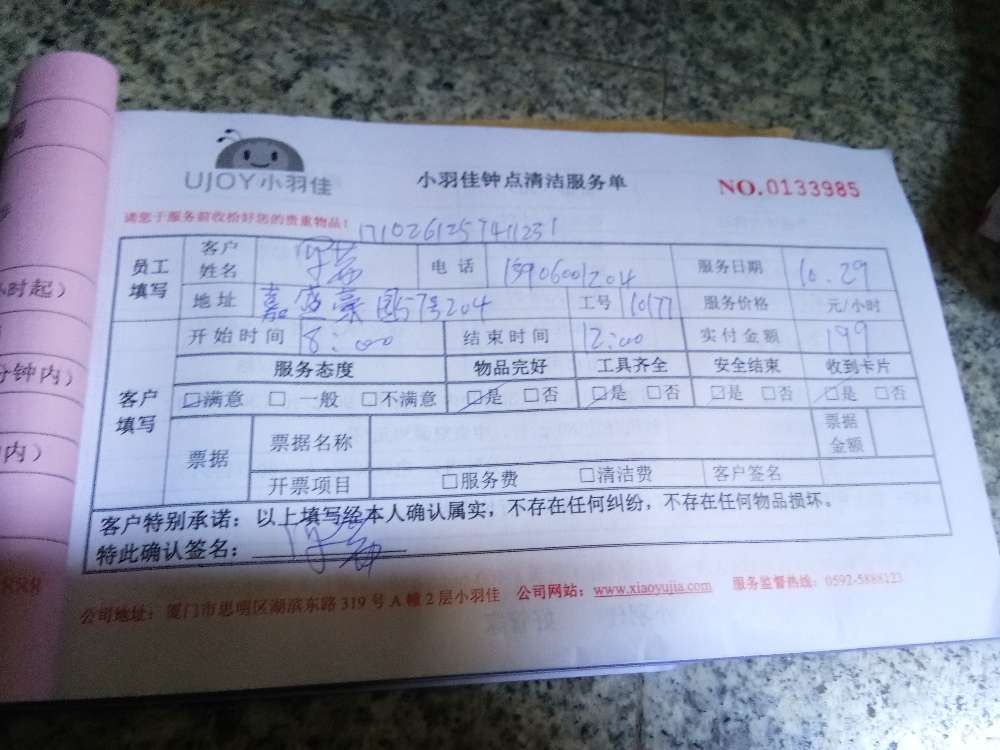 UJOY小羽佳
小羽佳钟点清洁服务单
NO.0133985
请您于服务前收拾好您的贵重物品!
171026125741231
员工填写 客户姓名 电话 15906001204 服务日期 10.29
地址 嘉盛豪园57号204 工号 10177 服务价格 元/小时
客户填写 开始时间 8:00 结束时间 12:00 实付金额 199
服务态度 物品完好 工具齐全 安全结束 收到卡片
□满意 □一般 □不满意 □是 □否 □是 □否 □是 □否 □是 □否
票据 票据名称 票据金额
开票项目 □服务费 □清洁费 客户签名
客户特别承诺:以上填写经本人确认属实,不存在任何纠纷,不存在任何物品损坏。
特此确认签名:
公司地址:厦门市思明区湖滨东路319号A幢2层小羽佳 公司网站:www.xiaoyujia.com 服务监督热线:0592-5888123
小时起)
分钟内)
内)